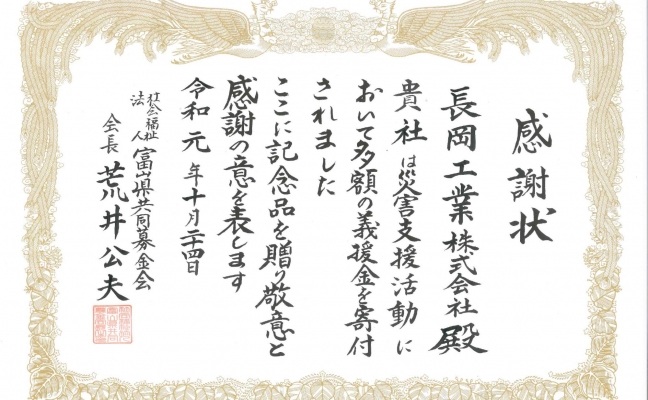 感謝状
長岡工業株式会社殿
貴社は災害支援活動に
おいて多額の義援金を寄付
されました
ここに記念品を贈り敬意と
感謝の意を表します
令和元年十月二十四日
社会福祉法人富山県共同募金会
会長荒井公夫